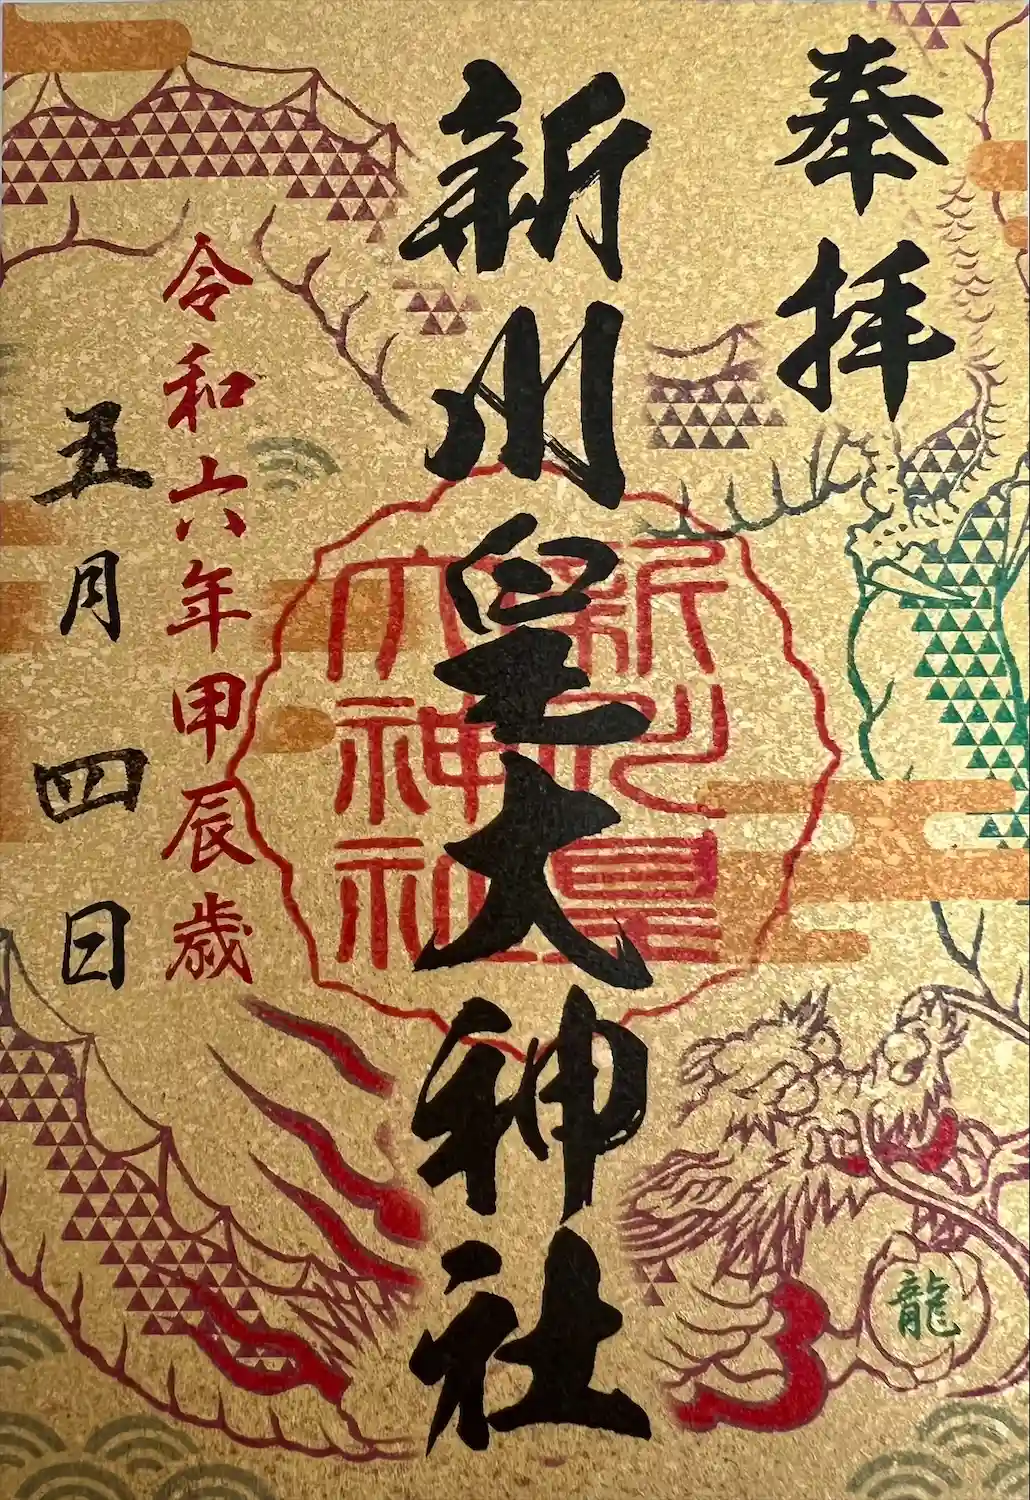 奉拝
新川皇大神社
新川皇
大神社
令和六年甲辰歳
五月四日
龍